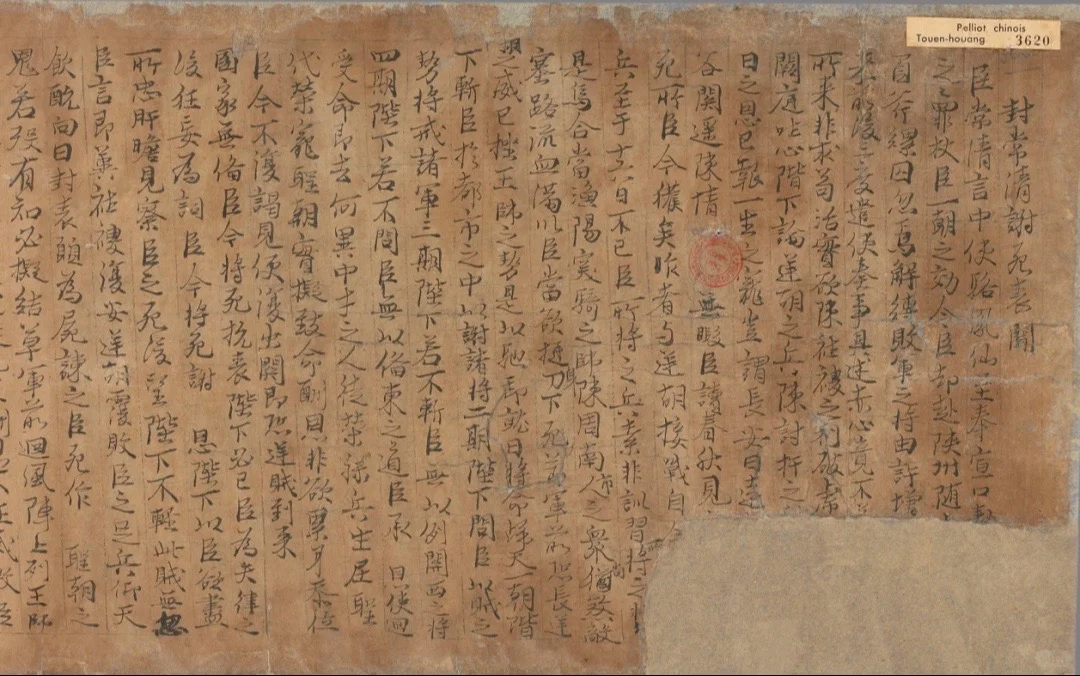 Pelliot chinois
Touen-houang 3620
一 封常清謝死表聞
臣常清言中使駱承仙至奉宣口
之罪救臣一朝之効今臣却赴陝州随
自斧縲囚忽焉解縛敗軍之将由許增
来前後三度遣使奉事具述赤心竟不
所来非求苟活實欲陳社禝之利破虜
闕庭吐心階下論逆胡之兵陳討捍之
日之恩已報一生之寵豈謂長安日遠
谷関遥陳情 無暇臣讀春秋見
死所臣今獲矣昨者与逆胡接戰自
兵至于十六日不已臣所将之兵素非訓習将之
是馬合當漁陽突騎之師陳周南市人之衆猶致敵
塞路流血滿川臣當欲挺刀下死軍前恐長逆
胡之威已挫王師之勢是以馳即日将命天一朝階
下斬臣於都市之中以謝諸将二期陛下問臣以賊之
势将戒諸軍三期陛下若不斬臣無以例關西之将
四期陛下若不問臣無以俻東之道臣承 恩使迴
受命即去何異中才之人徒榮祿兵生居聖
代榮寵聖朝實擬致命酬恩非欲要身恭位
臣今不復謁見便復出関即恐逆賊到来
國家無俻臣今将死抗表陛下必已臣為失律之
後任妄為詞 臣今将死謝 恩陛下以臣欲盡
所忠肝瞻見察臣之死後望陛下不輕此賊無忽
臣言即冀社禝復安逆胡覆敗臣之足矣仰天
飲酖向日封表願為屍諫之臣死作 聖朝之
鬼若歿有知必擬結草軍前迴風陣上列王師